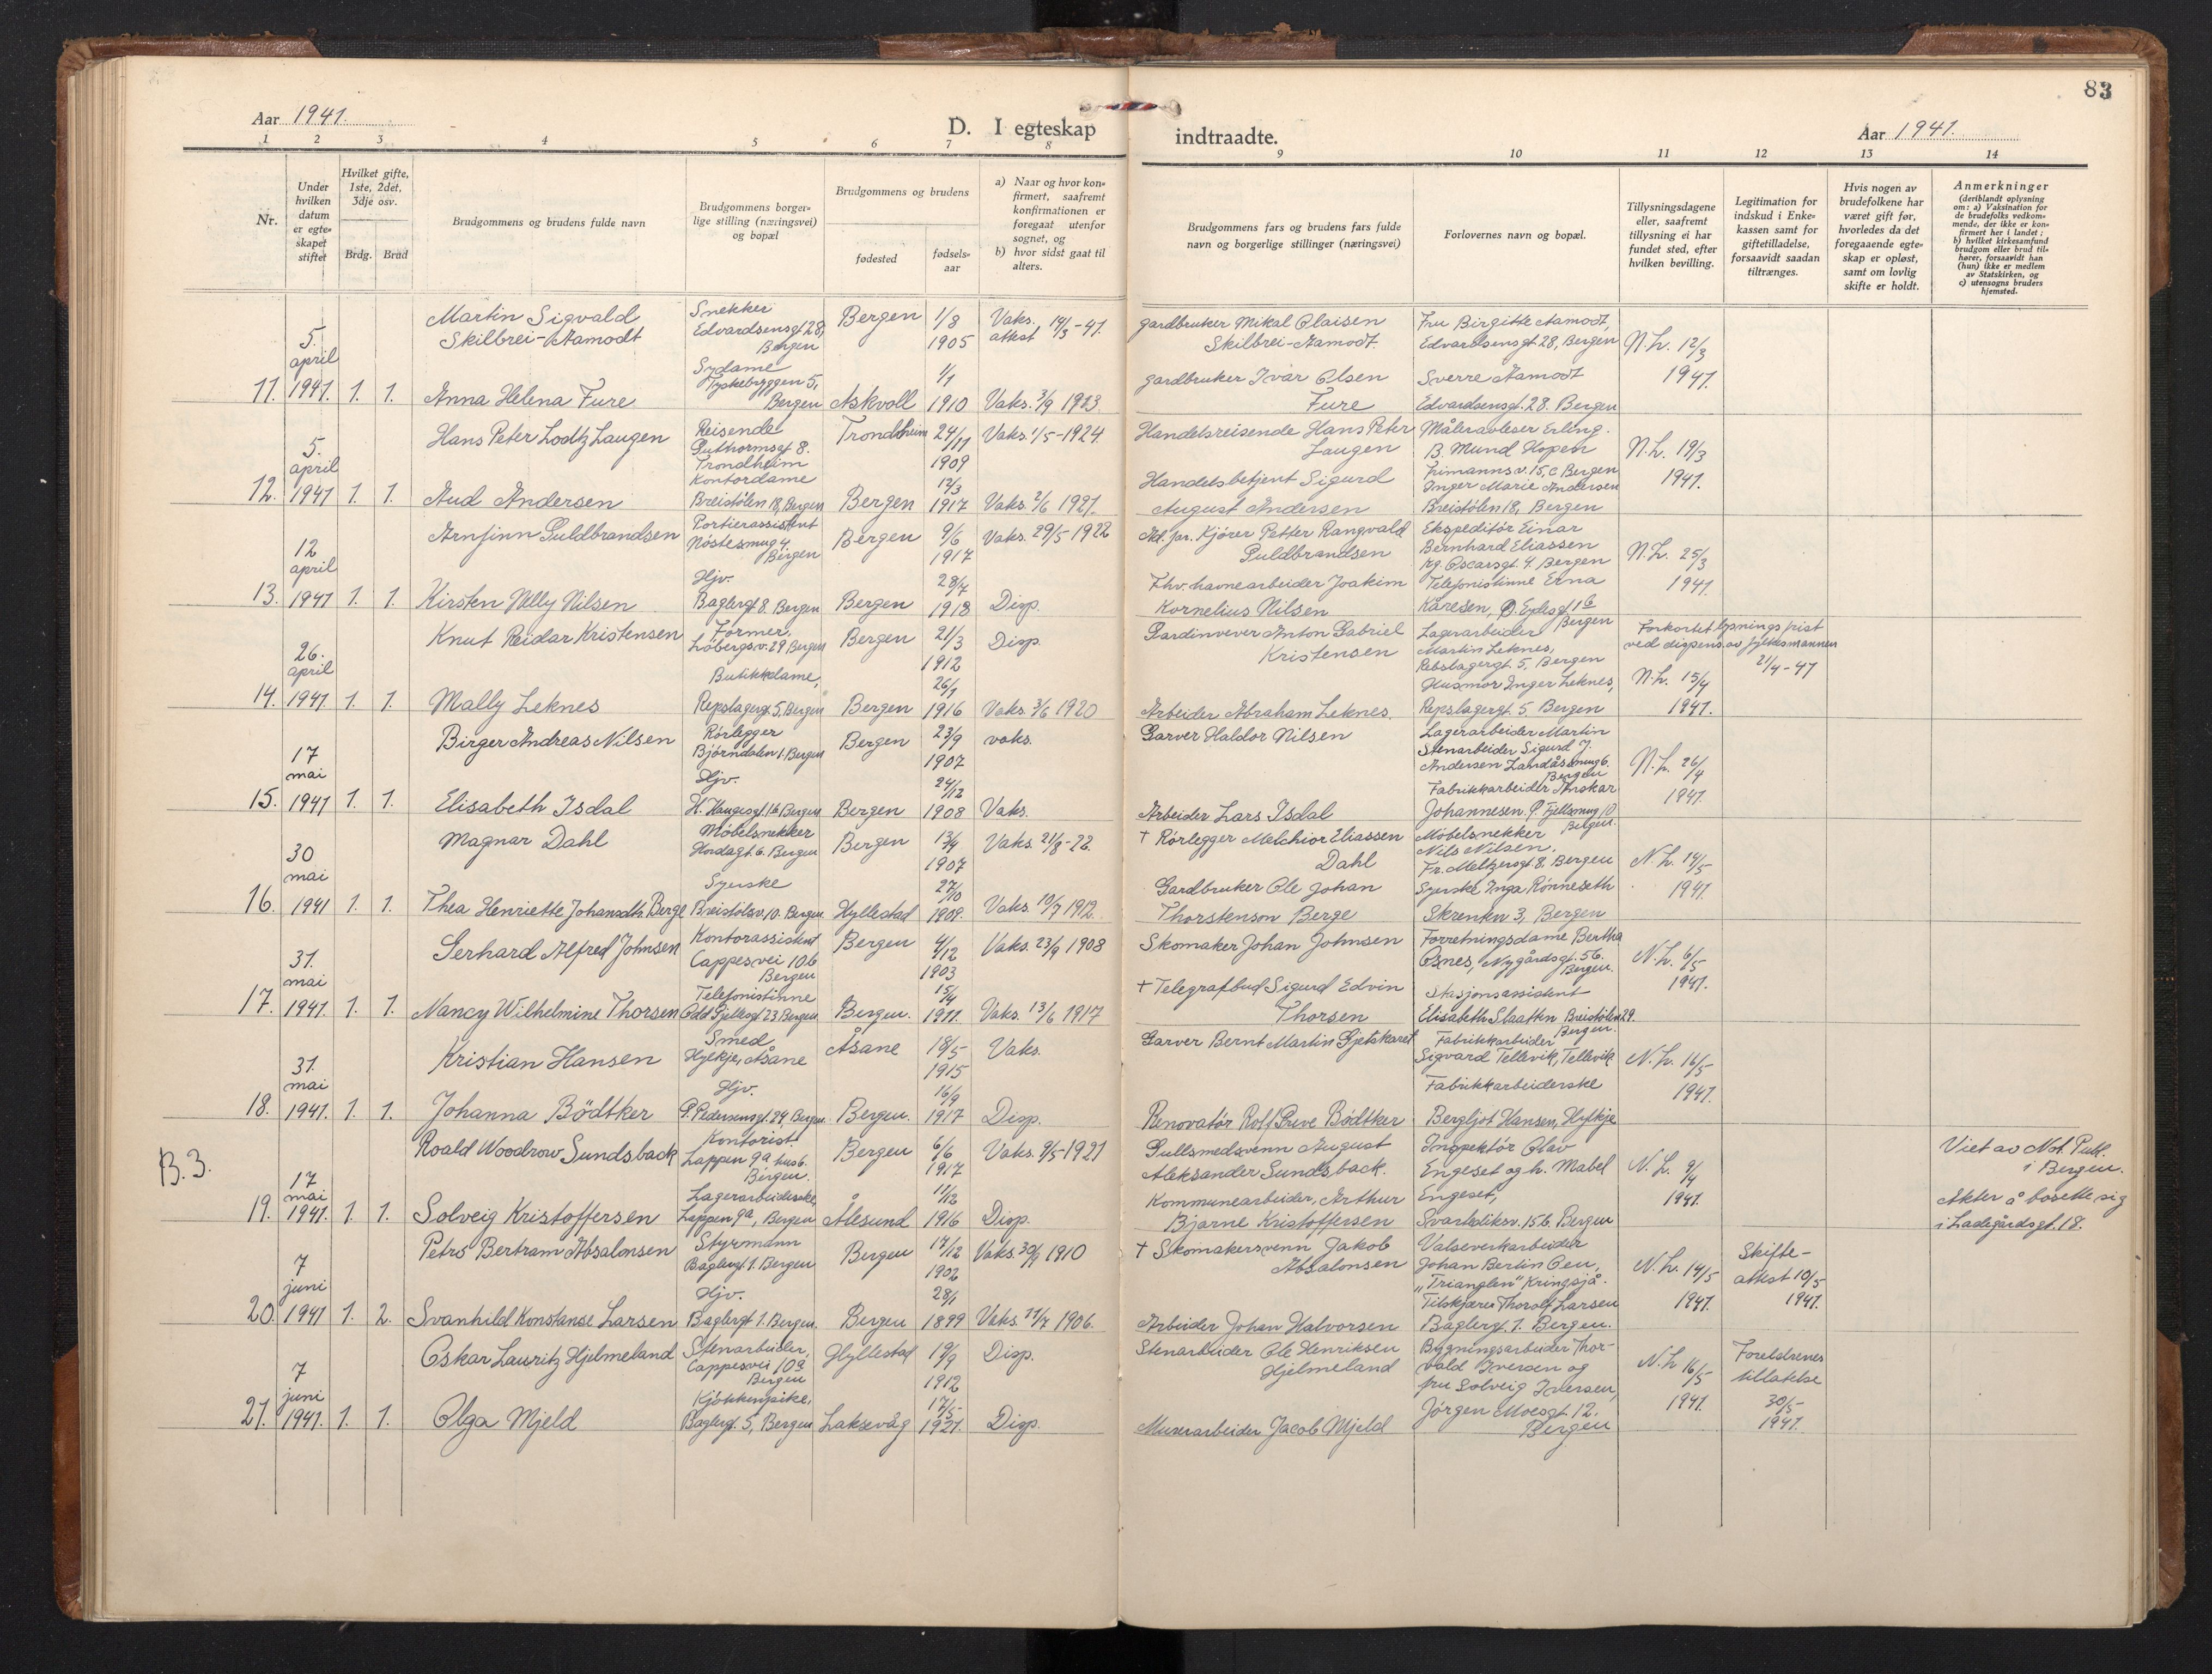 83
Aar 1941.
D. I egteskap
indtraadte.
Aar 1941.
1 2 3 4 5 6 7 8 9 10 11 12 13 14
Nr.
Under
hvilken
datum
er egte-
skapet
stiftet
Hvilket gifte,
1ste, 2det,
3dje osv.
Brdg. Brud
Brudgommens og brudens fulde navn
Brudgommens borger-
lige stilling (næringsvei)
og bopæl
Brudgommens og brudens
fødested
fødsels-
aar
a) Naar og hvor kon-
firmert, saafremt
konfirmationen er
foregaat utenfor
sognet, og
b) hvor sidst gaat til
alters.
Brudgommens fars og brudens fars fulde
navn og borgerlige stillinger (næringsvei)
Forlovernes navn og bopæl.
Tillysningsdagene
eller, saafremt
tillysning ei har
fundet sted, efter
hvilken bevilling.
Legitimation for
indskud i Enke-
kassen samt for
giftetilladelse,
forsaavidt saadan
tiltrænges.
Hvis nogen av
brudefolkene har
været gift før,
hvorledes da det
foregaaende egte-
skap er opløst,
samt om lovlig
skifte er holdt.
Anmerkninger
(deriblandt oplysning
om: a) Vaksination for
de brudefolks vedkom-
mende, der ikke er kon-
firmert her i landet;
b) hvilket kirkesamfund
brudgom eller brud til-
hører, forsaavidt han
(hun) ikke er medlem
av Statskirken, og
c) utensogns bruders
hjemsted.
11.
5.
april
1941. 1. 1.
Martin Sigvald
Skilbrei-Aamodt
Snekker
Edvardsensgt 28,
Bergen
Bergen
1/8
1905
Vaks. 14/3-41.
attest
gardbruker Mikal Olaisen
Skilbrei-Aamodt.
Fru Birgitte Aamodt,
Edvardsensgt 28, Bergen
N.L. 12/3
1941.
Anna Helena Fure
Sydame
Tyskebryggen 5,
Bergen
Askvoll
1/1
1910
Vaks. 3/9 1923
gardbruker Ivar Olsen
Fure
Sverre Aamodt
Edvardsensgt. 28. Bergen
12.
5.
april
1941 1. 1.
Hans Peter Lodtz Laugen
Reisende
Guthormsgt 8.
Trondheim
Trondheim
24/11
1909
Vaks. 1/5-1924
Handelsreisende Hans Peter
Laugen
Måleravleser Erling.
B. Mund Hopen
Frimannsv. 15, c Bergen
N.L. 19/3
1941.
Aud Andersen
Kontordame
Breistølen 18, Bergen
Bergen
12/3
1917
Vaks. 2/6 1921.
Handelsbetjent Sigurd
August Andersen
Inger Marie Andersen
Breistølen 18, Bergen
13.
12
april
1941 1. 1.
Arnfinn Guldbrandsen
Portierassistent
Nøstesmug 4.
Bergen
Bergen
9/6
1917
Vaks. 29/5 1922
Ad. pr. Kjører Petter Rangvald
Guldbrandsen
Ekspeditør Einar
Bernhard Eliassen
Kg. Oscarsgt. 4. Bergen
N.L. 25/3
1941.
Kirsten Nelly Nilsen
Hjv.
Baglergt 8. Bergen
Bergen
28/4
1918
Disp.
Fhv. havnearbeider Joakim
Kornelius Nilsen
Telefonistinne Erna
Kåresen, D. Eydesgt 16
Bergen
14.
26.
april
1941. 1. 1.
Knut Reidar Kristensen
Former,
Løbergsv. 29 Bergen
Bergen
21/3
1912
Disp.
Gardinvever Anton Gabriel
Kristensen
Lagerarbeider
Martin Leknes,
Repslagergt. 5, Bergen
Forkortet lysningsfrist
ved dispens. av fylkesmannen
21/4-41
N.L. 15/4
1941.
Mally Leknes
Butikkdame,
Repslagergt. 5, Bergen
Bergen
26/1
1916
Vaks. 3/6 1920
Arbeider Abraham Leknes.
Husmor Inger Leknes,
Repslagergt. 5. Bergen
15.
17
mai
1941 1. 1.
Birger Andreas Nilsen
Rørlegger
Bjørndalen 1. Bergen
Bergen
23/9
1907
vaks.
Garver Haldor Nilsen
Lagerarbeider Martin
Stenarbeider Sigurd J.
Andersen Landåssmug 6.
Bergen
N.L. 26/4
1941.
Elisabeth Isdal
Hjv.
H. Haugesgt 16 Bergen
Bergen
24/12
1908
Vaks.
Arbeider Lars Isdal
Fabrikkarbeider Anskar
Johannesen, Ø. Fjellsmug 10
Bergen.
16.
30
mai
1941 1. 1.
Magnar Dahl
Møbelsnekker
Hordagt. 6. Bergen
Bergen
13/4
1907
Vaks. 21/8-22.
† Rørlegger Melchior Eliassen
Dahl
Møbelsnekker
Nils Nilsen.
Fr. Meltzersgt 8, Bergen
N.L. 14/5
1941.
Thea Henriette Johansdtr. Berge
Syerske
Breistølsv. 10. Bergen
Hyllestad
27/10
1909.
Vaks. 10/7 1912.
Gardbruker Ole Johan
Thorstenson Berge
Syerske Inga Rønneseth
Skrenten 3, Bergen
17.
31.
mai
1941. 1. 1.
Gerhard Alfred Johnsen
Kontorassistent
Cappesvei 10b
Bergen
Bergen
4/12
1903
Vaks. 23/9 1908
Skomaker Johan Johnsen
Forretningsdame Bertha
Osnes, Nygårdsgt. 56.
Bergen.
N.L. 6/5
1941.
Nancy Wilhelmine Thorsen
Telefonistinne
Odd Gjellesgt 23 Bergen
Bergen.
15/4
1911.
Vaks. 13/6 1917
† Telegrafbud Sigurd Edvin
Thorsen
Stasjonsassistent
Elisabeth Slaatten Breistølen 29.
Bergen.
18.
31.
mai
1941. 1. 1.
Kristian Hansen
Smed
Hylkje, Åsane
Åsane
18/5
1915
Vaks.
Garver Bernt Martin Gjetskaret
Fabrikkarbeider
Sigvard Tellevik, Tellevik
N.L. 16/5
1941.
Johanna Bødtker
Hjv.
P. Pedersensgt. 24, Bergen
Bergen.
16/9
1917
Disp.
Renovatør Rolf Greve Bødtker
Fabrikkarbeiderske
Bergljot Hansen, Hylkje
B.3.
19.
17
mai
1941. 1. 1.
Roald Woodrow Sundsback
Kontorist.
Lappen 9a hus 6.
Bergen.
Bergen
6/6
1917
Vaks. 9/5-1921
Gullsmedsvenn August
Aleksander Sundsback.
Inspektør Olav
Engeset og h. Mabel
Engeset,
N.L. 9/4
1941.
Viet av Not. Publ.
i Bergen.
Akter å bosette sig
i Ladegårdsgt. 18.
Solveig Kristoffersen
Lagerarbeiderske,
Lappen 9a, Bergen
Ålesund
11/12
1916
Disp.
Kommunearbeider, Arthur
Bjarne Kristoffersen
Svartediksv. 15b. Bergen
20.
7
juni
1941 1. 2.
Petrs Bertram Absalonsen
Styrmann
Baglergt. 1. Bergen
Bergen
14/12
1902
Vaks. 30/9 1910
† Skomakersvenn Jakob
Absalonsen
Valseverkarbeider
Johan Bertin Oen,
"Trianglen" Kringsjå.
N.L. 14/5
1941.
Skifte-
attest 10/5
1941.
Svanhild Konstanse Larsen
Hjv.
Baglergt 1. Bergen.
Bergen
28/1
1899
Vaks. 11/7 1906.
Arbeider Johan Halvorsen
Tilskjærer Thorolf Larsen
Baglergt. 1. Bergen.
21.
7
juni
1941. 1. 1.
Oskar Lauritz Hjelmeland
Stenarbeider,
Cappesvei 10a
Bergen
Hyllestad
19/9
1912
Disp.
Stenarbeider Ole Henriksen
Hjelmeland
Bygningsarbeider Thor-
vald Iversen og
fru Solveig Iversen,
Jørgen Moesgt. 12.
Bergen
N.L. 16/5
1941.
Foreldrenes
tillatelse
30/5-
1941.
Olga Mjeld
Kjøkkenpike,
Baglergt. 5, Bergen
Laksevåg
17/5
1921.
Disp.
Murerarbeider Jacob Mjeld